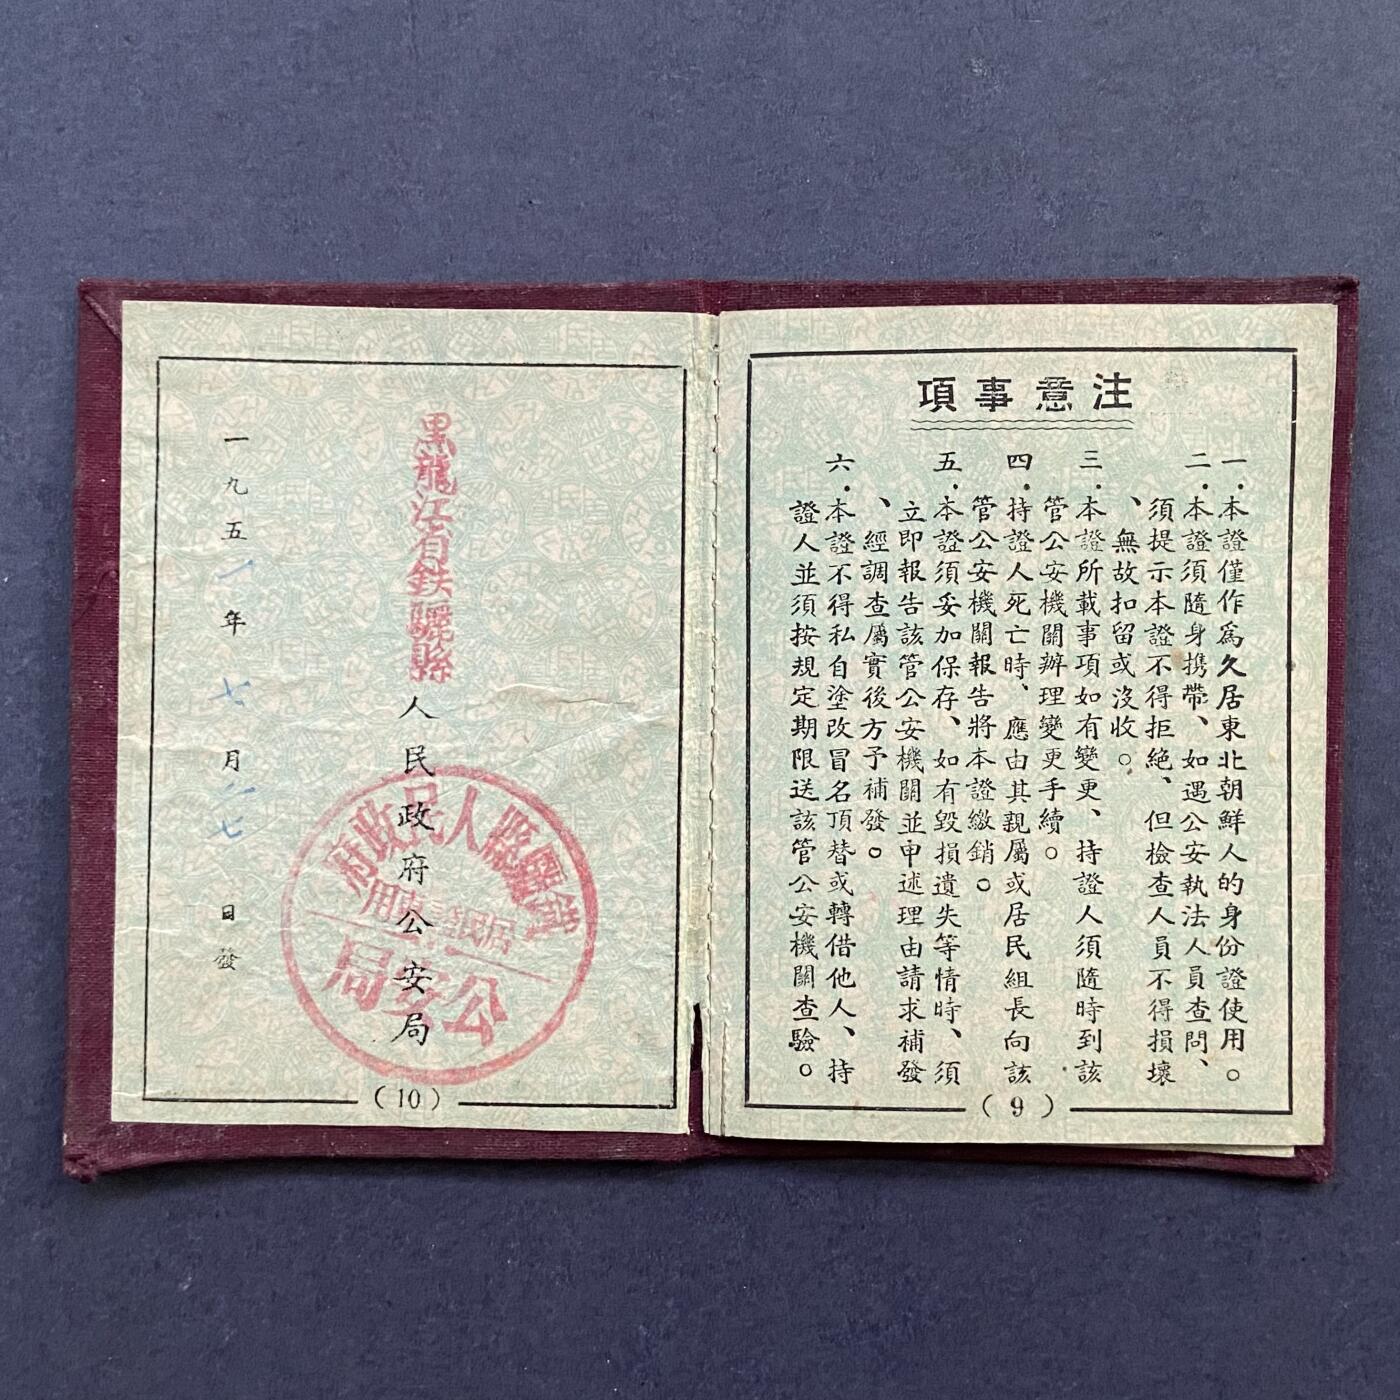 注意事項
一．本證僅作爲久居東北朝鮮人的身份證使用。
二．本證須隨身携帶、如遇公安執法人員查問、
須提示本證不得拒絶、但檢查人員不得損壞
、無故扣留或沒收。
三．本證所載事項如有變更、持證人須隨時到該
管公安機關辦理變更手續。
四．持證人死亡時、應由其親屬或居民組長向該
管公安機關報告將本證繳銷。
五．本證須妥加保存、如有毀損遺失等情時、須
立即報告該管公安機關並申述理由請求補發
、經調查屬實後方予補發。
六．本證不得私自塗改冒名頂替或轉借他人、持
證人並須按規定期限送該管公安機關查驗。
(9)
黑龍江省鉄驪縣人民政府公安局
鐵驪縣人民政府
居民證專用
公安局
一九五一年七月七日發
(10)